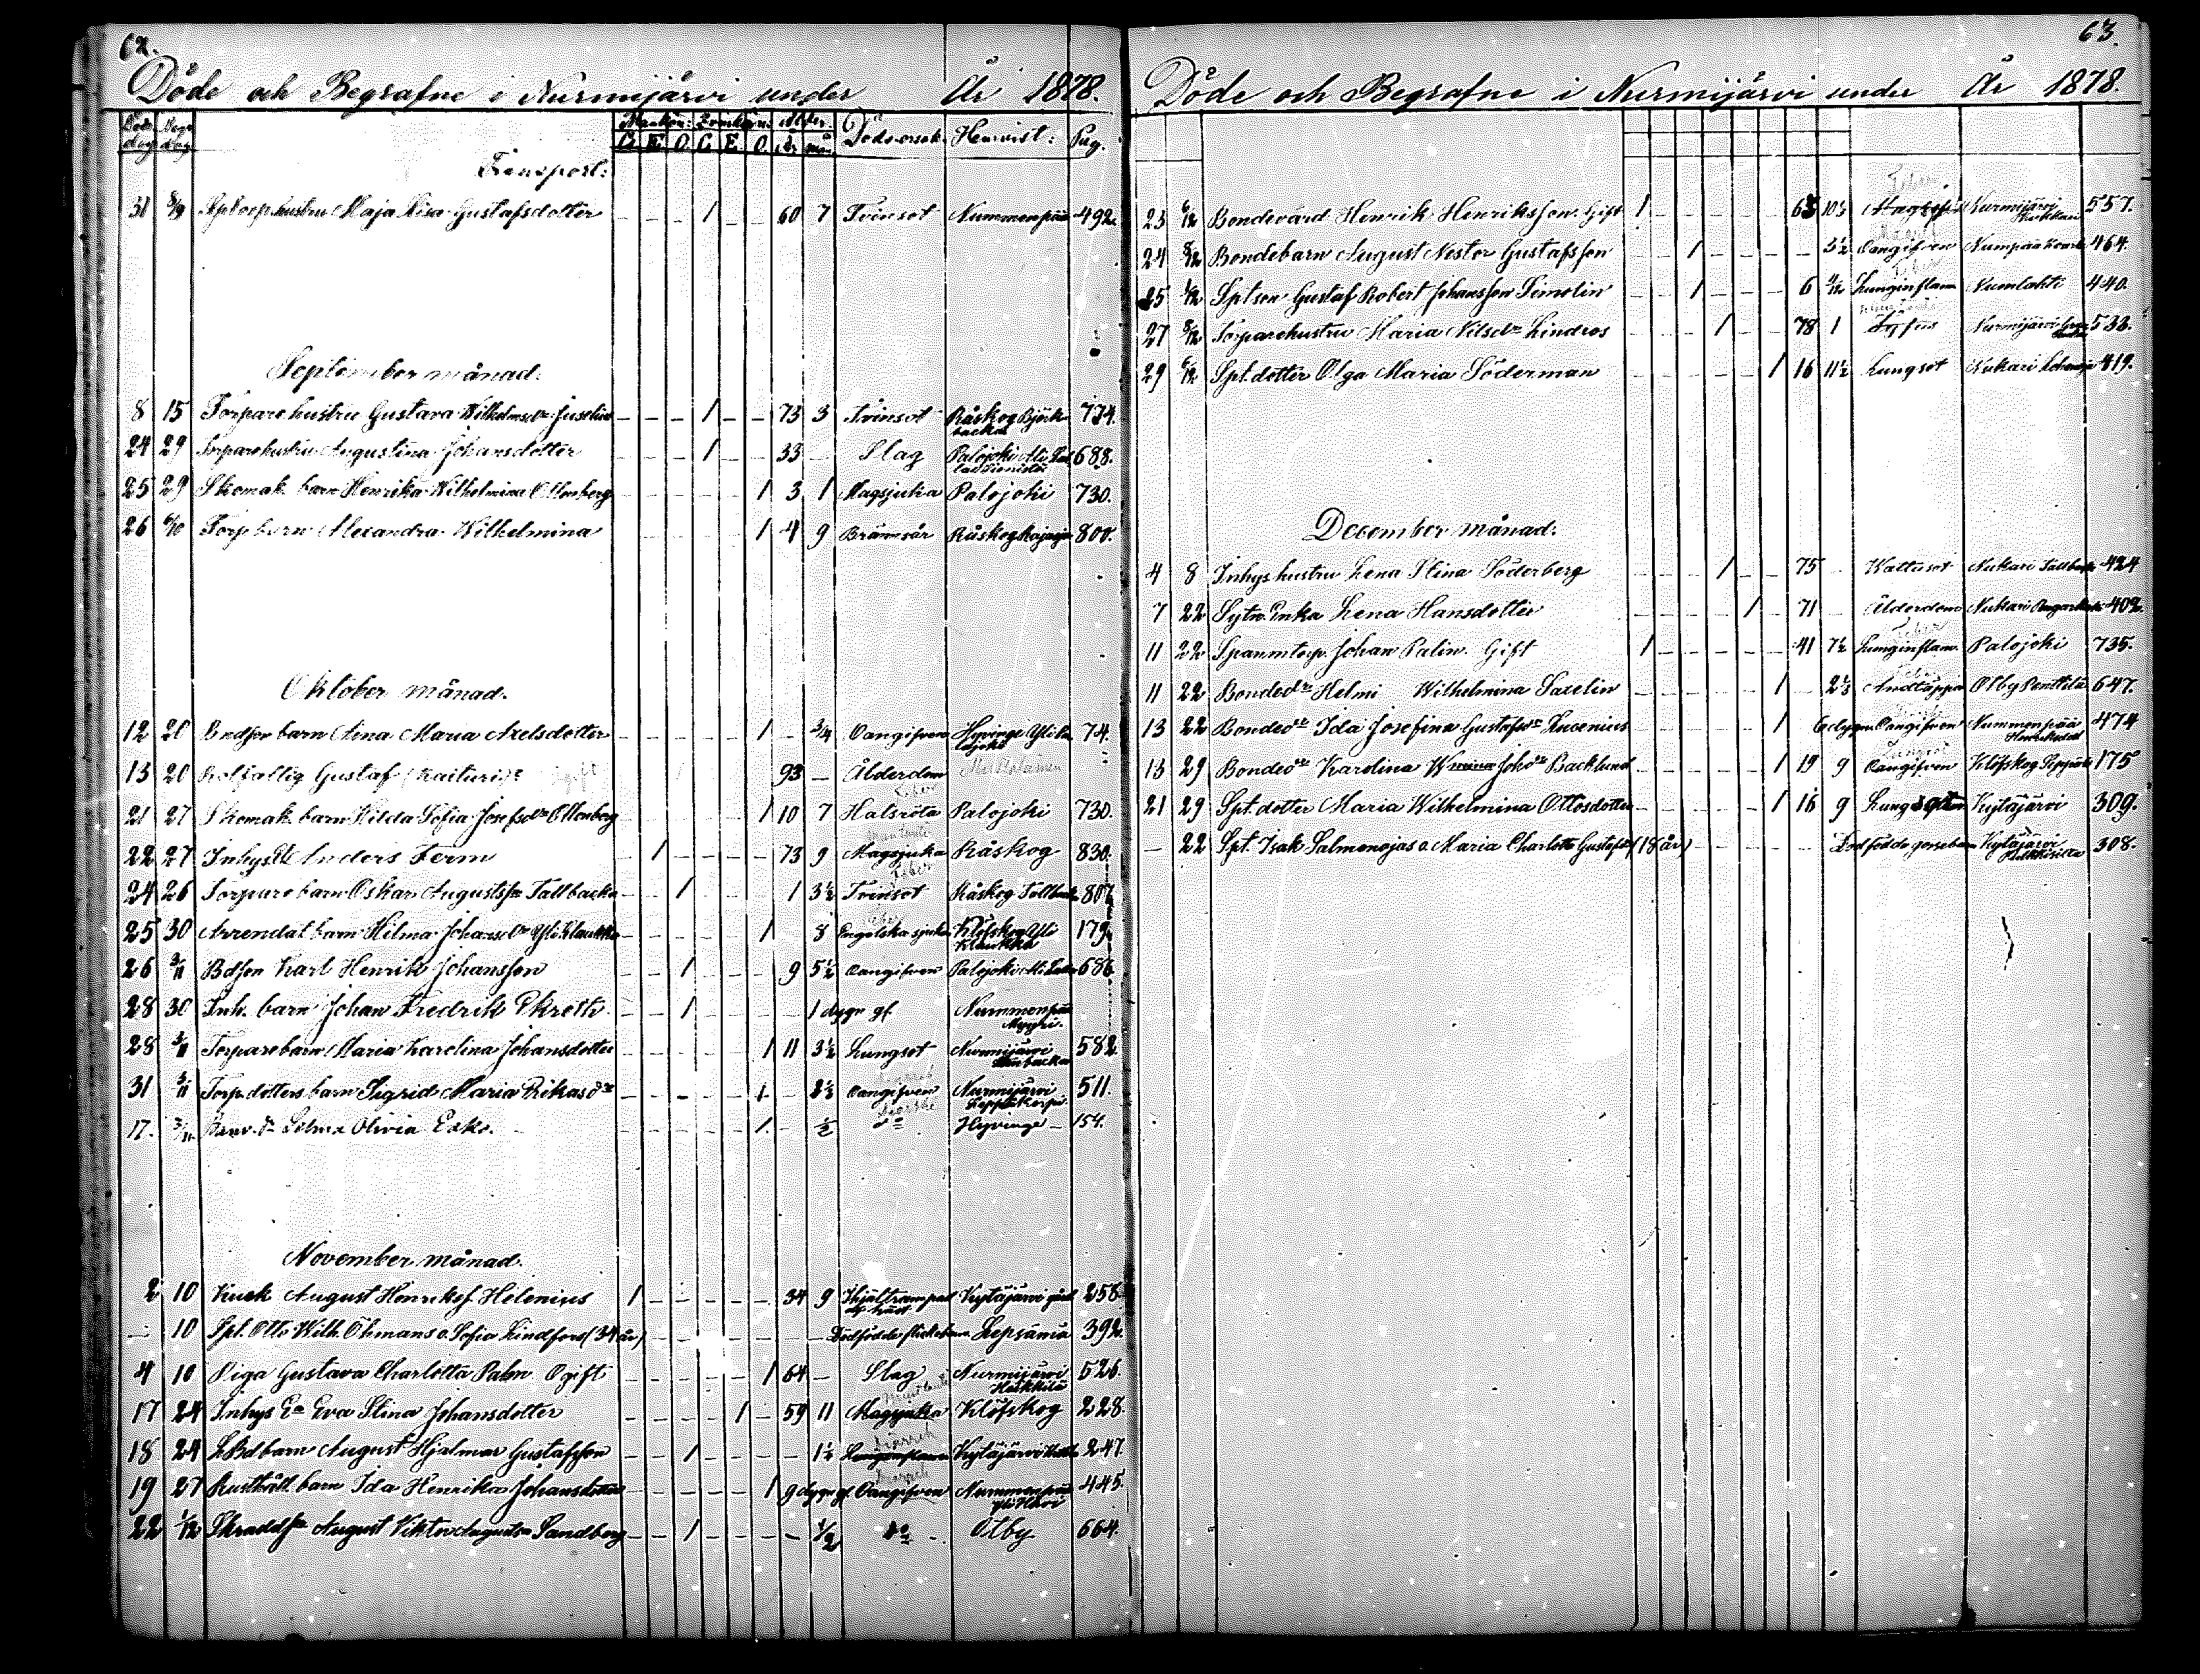 62.
Döde och Begrafne i Nurmijärvi under År 1878.
Döds dag Begr dag Mankön: Qvinkön: Ålder Dödsorsak. Hemvist: Pag.
G E O G E O år mån
Transport:
31 8/9 hustru Maja Lisa Gustafsdotter 1 60 7 Tvinsot Nummenpää 492.
September månad.
8 15 Torparehustru Gustava Wilhelmsdr Juselius 1 73 3 Tvinsot Råskog Björkbacka 774.
24 29 Torparehustru Augustina Johansdotter 1 33 Slag Palojoki 688.
25 29 Skomak. barn Henrika Wilhelmina Ollonberg 1 3 1 Magsjuka Palojoki 730.
26 6/10 Torp barn Alexandra Wilhelmina 1 4 9 Brännsår Råskog 800.
Oktober månad.
12 20 Bndson barn Aina Maria Axelsdotter 1 3/4 Oangifven Hyvinge 74.
13 20 Gustaf 93 – Ålderdom
21 27 Skomak. barn Hilda Sofia Josefsdr Ollonberg 1 10 7 Halsröta Palojoki 730.
22 27 Inhys Anders Ferm 1 73 9 Magsjuka Råskog 830.
24 26 Torpare barn Oskar Augustssn Tallbacka 1 1 3½ Tvinsot Råskog Tallbacka 807.
25 30 Arrendat. barn Hilma Johansdr Yliklaukka 1 8 Engelska sjukan Klöfskog Yli Klaukka 179.
26 3/11 Bdson Karl Henrik Johansson 1 9 5½ Oangifven Palojoki 686
28 30 Inh. barn Johan Fredrik Ekroth 1 1 dygn gl. Nummenpää Myyri.
28 3/11 Torparebarn Maria Karolina Johansdotter 1 11 3½ Lungsot Nurmijärvi 582
31 3/11 Torp.dotters barn Sigrid Maria Erikasdr 1 2½ Oangifven Nurmijärvi 511.
17. 3/11 Selma Olivia Esko. 1 ½ do Hyvinge 154.
November månad.
2 10 Kusk August Henrikss. Helenius 1 34 9 Ihjältrampad af häst Kytäjärvi gård 258
– 10 Spt. Otto Wilh. Öhmans o Sofia Lindfors (34 år) Dödfödde flickebarn Lepsämä 392.
4 10 Piga Gustava Charlotta Palm Ogift 1 64 – Slag Nurmijärvi Heikkilä 526.
17 24 Inhys Ea Eva Stina Johansdotter 1 59 11 Magsjuka Klöfskog 228.
18 24 barn August Hjalmar Gustafsson 1 1½ Kytäjärvi 247.
19 27 Rusthåll. barn Ida Henrika Johansdotter 1 9 dygn gl Oangifven Nummenpää 445.
22 1/12 Skraddsn August Viktor Augustsn Sandberg 1 ½ do Otby 664.
63.
Döde och Begrafne i Nurmijärvi under År 1878.
23 6/12 Bondevärd Henrik Henriksson. Gift 1 65 10½ Nurmijärvi 557.
24 8/12 Bondebarn August Nestor Gustafsson 1 3½ Oangifven Numpää 464.
25 1/12 Spt son Gustaf Robert Johansson Timolin 1 6 Lunginflam Numlahti 440.
27 8/12 Torparehustru Maria Nilsdr Lindros 1 78 1 Tyfus Nurmijärvi 533.
29 6/12 Spt. dotter Olga Maria Söderman 1 16 11½ Lungsot Nukari 419.
December månad.
4 8 Inhys hustru Lena Stina Söderberg 1 75 Wattusot Nukari 424
7 22 Sytn. Enka Lena Hansdotter 1 71 Ålderdom Nukari 402.
11 22 Spanmtorp. Johan Palin. Gift 1 41 7½ Lunginflam. Palojoki 735.
11 22 Bondedr Helmi Wilhelmina Saxelin 1 2½ Andtäppa Otby Penttilä 647.
13 22 Bondedr Ida Josefina Gustafsdr Lucenius 1 6 dygn Oangifven Nummenpää 474
13 29 Bondedr Karolina Wmina Johdr Backlund 1 19 9 Oangifven Klöfskog 175
21 29 Spt. dotter Maria Wilhelmina Ottosdotter 1 16 9 Kytäjärvi 309.
– 22 Spt. Isak Salmenojas o Maria Charlotta Gustafsdr (18 år) Dödfödde gossebarn Kytäjärvi 308.